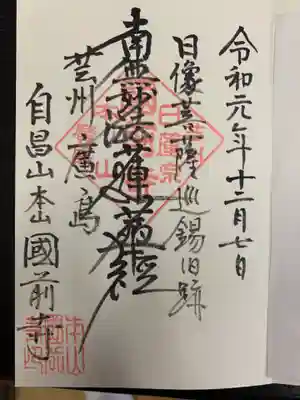 令和元年十二月七日
日像菩薩巡錫旧跡
南無妙法蓮華經
芸州廣島
自昌山本山國前寺